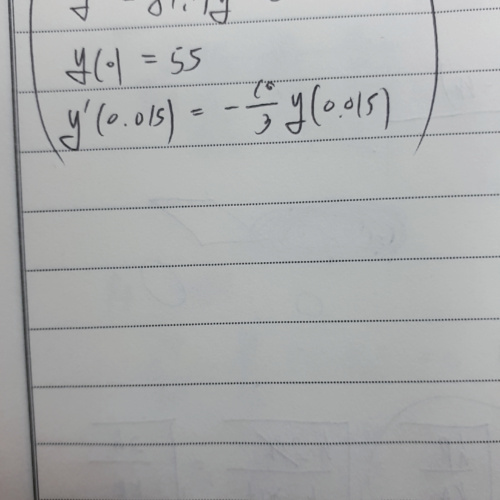 y(0) = 55
y'(0.015) = -10/3 y(0.015)